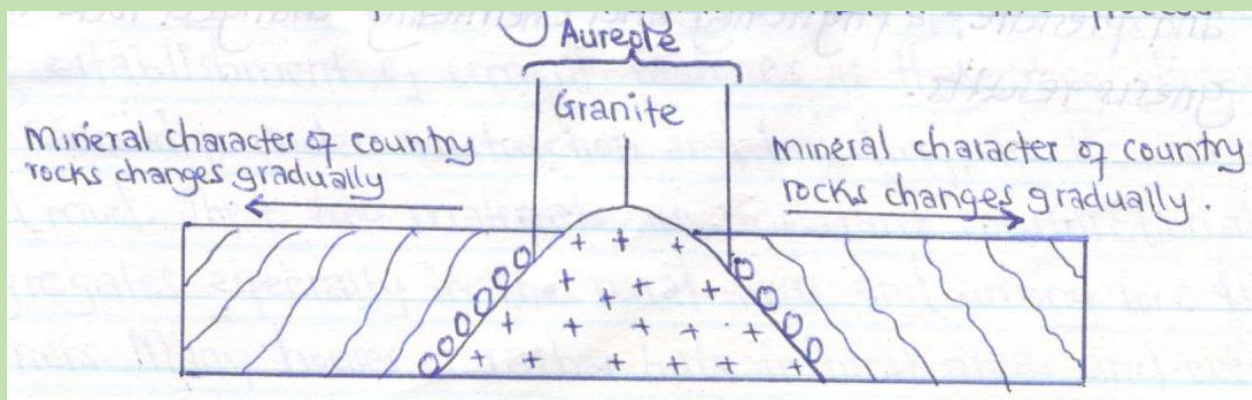 process
Aureole
Granite
Mineral character of country
rocks changes gradually
Mineral character of country
rocks changes gradually.